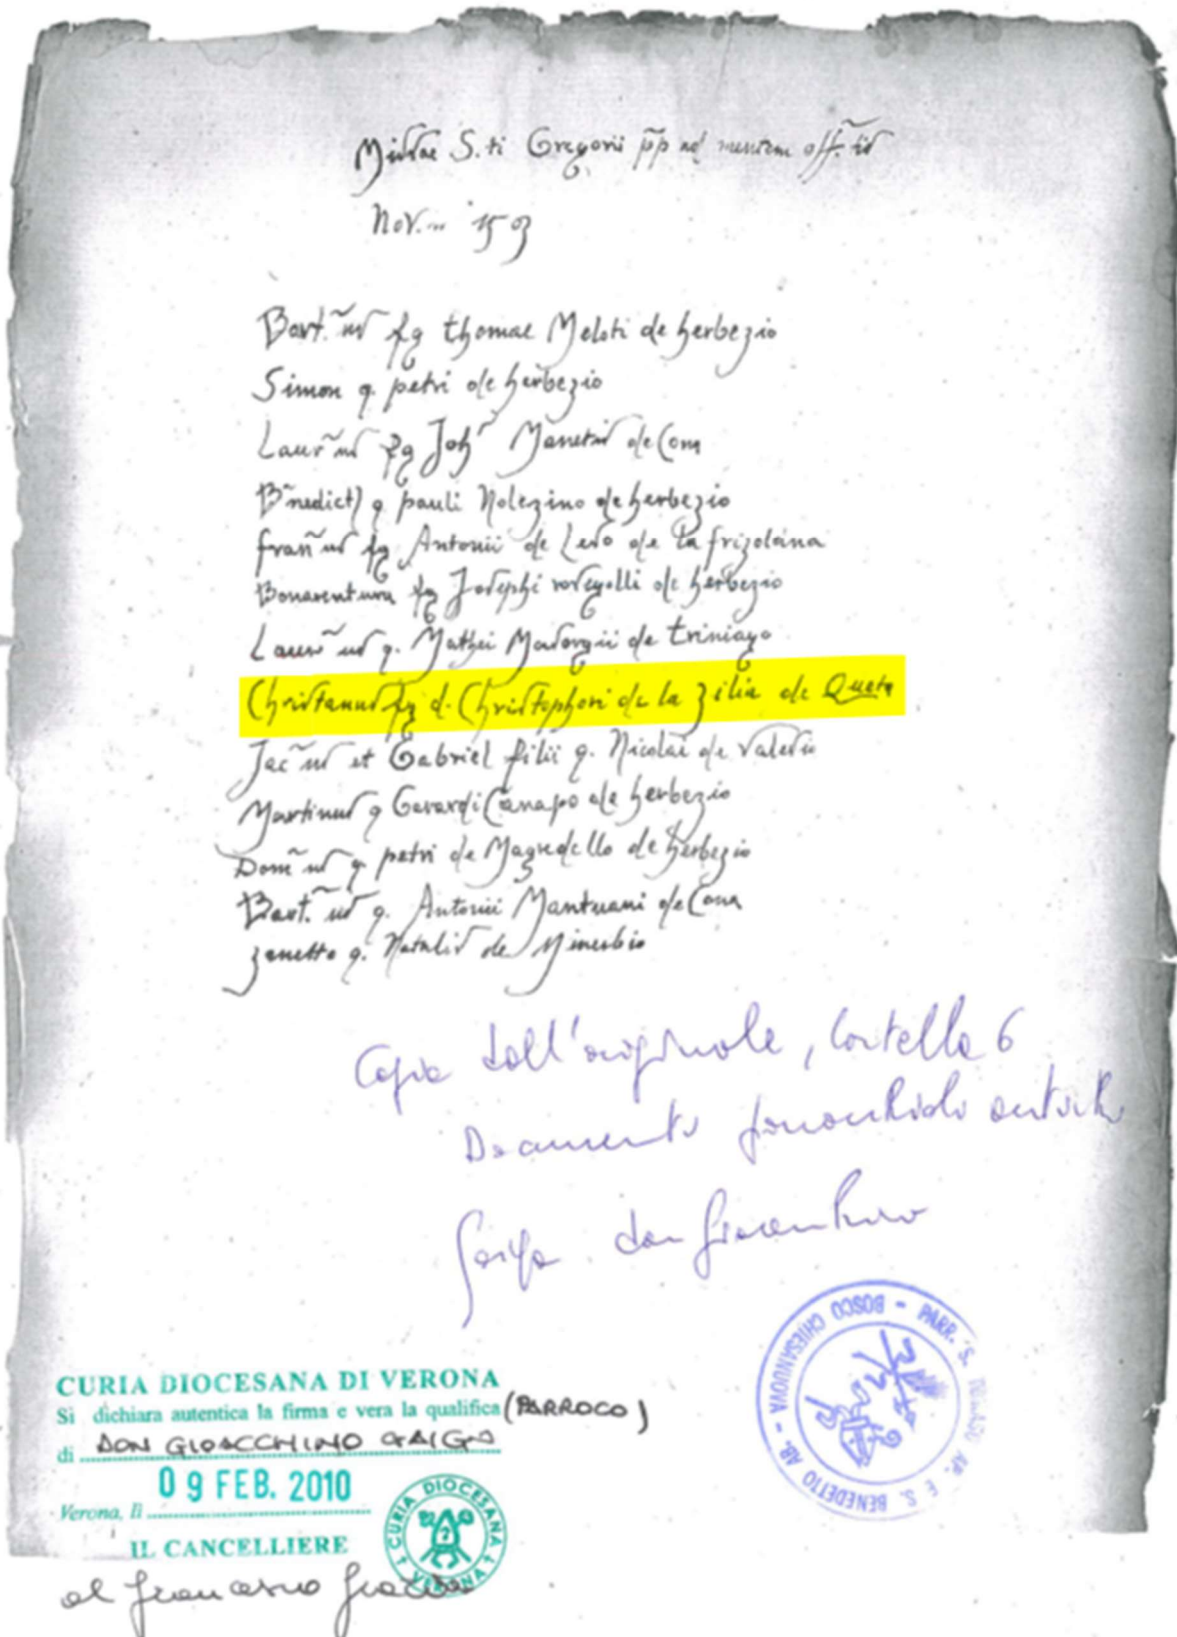 Missae S.ti Gregorii pp ad mentem off.
Nov... 1503
Bart.us fq thomae Meloti de herbezio
Simon q. petri de herbezio
Laur us fq Joh Manetis de Cona
Bnedict q pauli Nolezino de herbezio
fran us fq Antonii de Leso de la frizolana
Bonaventura fq Josephi de herbezio
Laure us q. Mathei de triniago
Christanus fq d. Christophori de la zilia de Queta
Jac us et Gabriel filii q. Nicolai de Valesii
Martinus q Gerardi Canapo de herbezio
Dom us q petri de Magredello de herbezio
Bart. us q. Antonii Mantuani de Cona
Zenetto q. Natalis de Minerbio
Copia dall'originale, Cartella 6
Documenti parrocchiali antichi
Gaiga don Gioacchino
PARR. S. TOMASO AP. E S. BENEDETTO AB. - BOSCO CHIESANUOVA -
CURIA DIOCESANA DI VERONA
Si dichiara autentica la firma e vera la qualifica (PARROCO)
di DON GIOACCHINO GAIGA
09 FEB. 2010
Verona, lì
IL CANCELLIERE
CURIA DIOCESANA VERONA